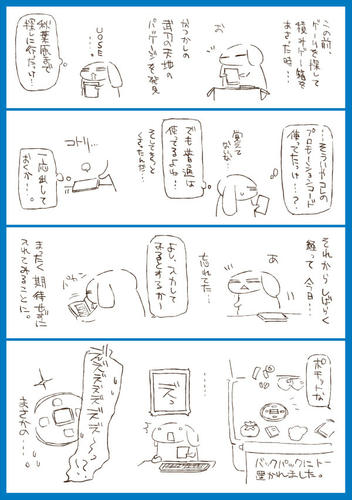 この前、
ゲームを探して
積みゲー箱を
あさった時…
なつかしの
武刀の天地の
パッケージを発見
UOSE
秋葉原まで
探しに行った
…そういやコレの
プロモーションコード
使ってたっけ…?
覚えて
ないな
でも普通は
使ってるよね…
そしてそっと
コトリ…
一応出して
おくか…。
それからしばらく
経って今日…
あ
忘れてた…
よし、スカして
みるとするか〜
まったく期待せずに
入れてみることに。
ポチっとな
バックパックにトー
置かれました。
ズっ
ズズズズズズズ
まさかの…